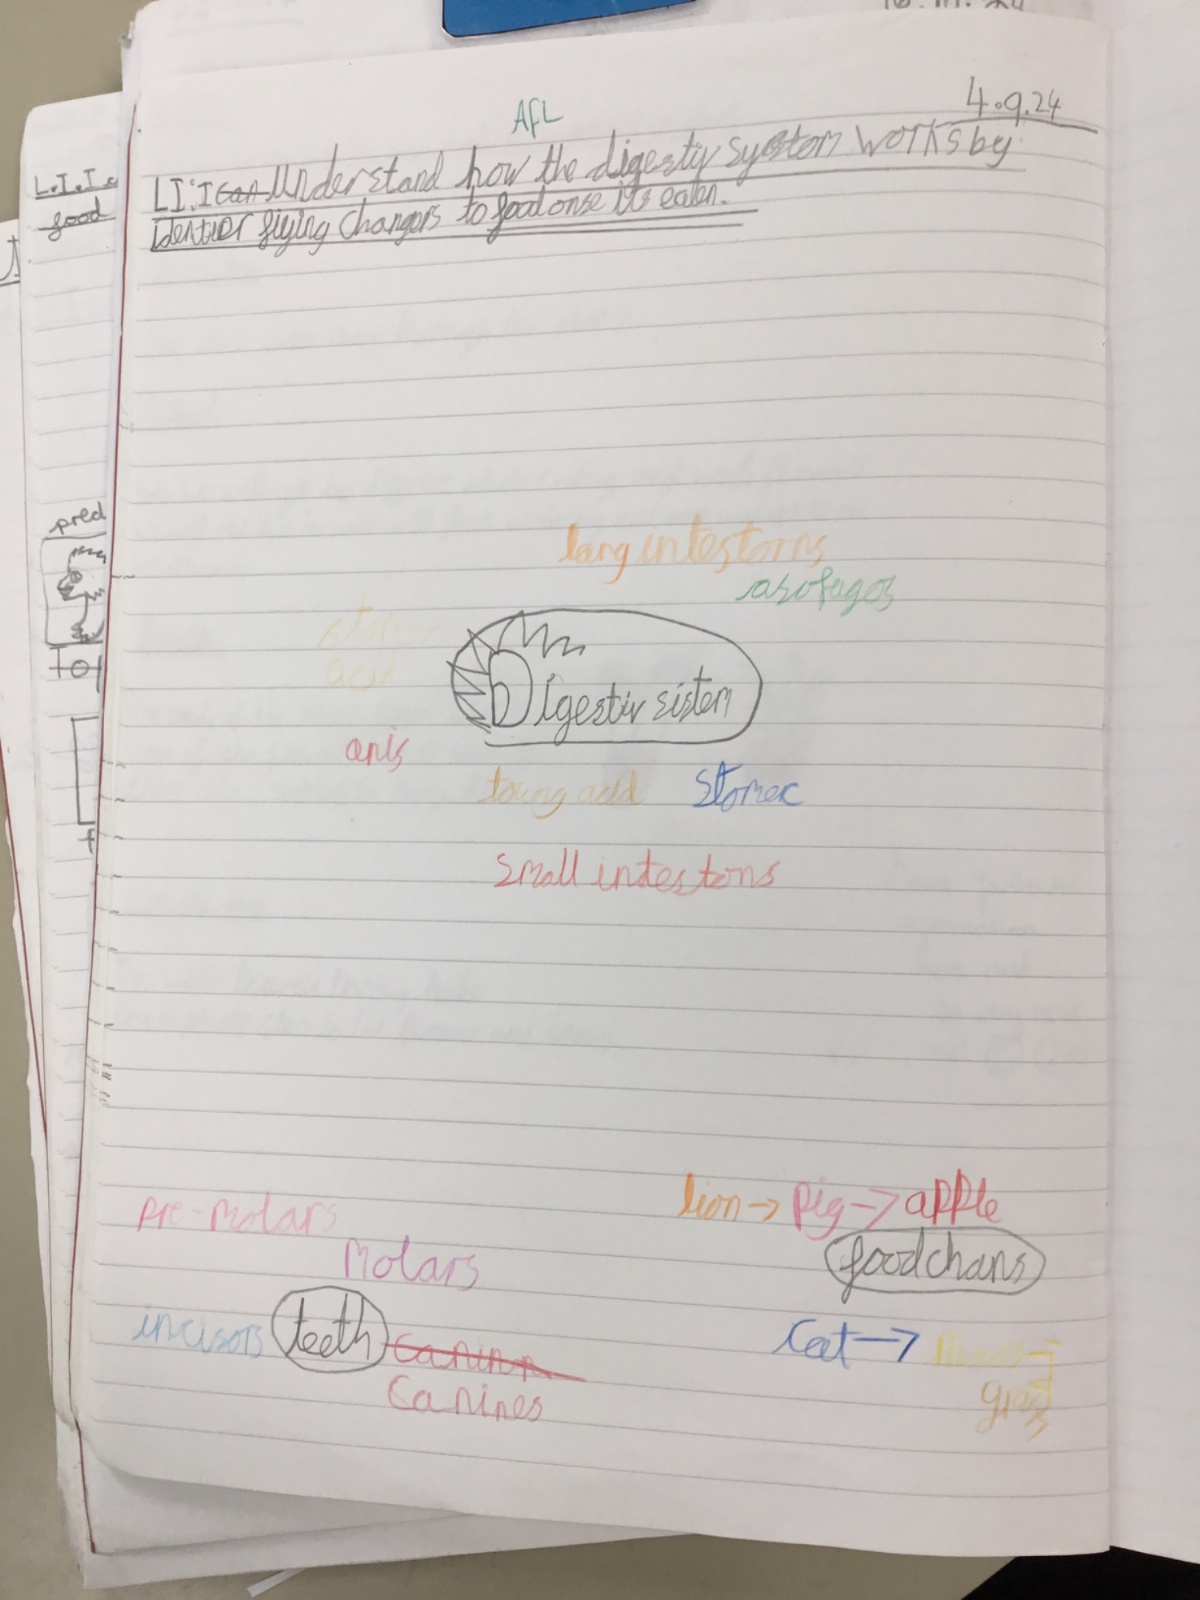 AFL
4.9.24
LI: I can Understand how the digestiv system works by
identier fiying changers to food onse its eaten.
L.I.I
food
pred
lang intestorns
asofagos
stomec
acid
Digestiv sistem
anis
toung acid
Stomec
Small intestons
lion → pig → apple
Pre-molars
foodchans
Molars
incisors
teeth
Caninn
Cat →
Canines
gras